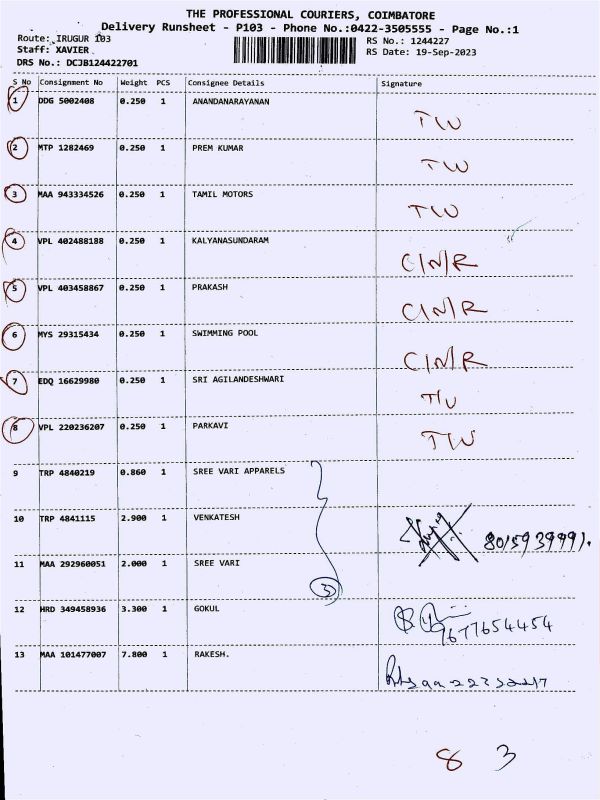 THE PROFESSIONAL COURIERS, COIMBATORE
Delivery Runsheet - P103 - Phone No.:0422-3505555 - Page No.:1
Route: IRUGUR 103 RS No.: 1244227
Staff: XAVIER RS Date: 19-Sep-2023
DRS No.: DCJB124422701
S No Consignment No Weight PCS Consignee Details Signature
1 DDG 5002408 0.250 1 ANANDANARAYANAN
T/W
2 MTP 1282469 0.250 1 PREM KUMAR
T/W
3 MAA 943334526 0.250 1 TAMIL MOTORS
T/W
4 VPL 402488188 0.250 1 KALYANASUNDARAM
C/N/R
5 VPL 403458867 0.250 1 PRAKASH
C/N/R
6 MYS 29315434 0.250 1 SWIMMING POOL
C/N/R
7 EDQ 16629980 0.250 1 SRI AGILANDESHWARI
8 VPL 220236207 0.250 1 PARKAVI
T/W
9 TRP 4840219 0.860 1 SREE VARI APPARELS
10 TRP 4841115 2.900 1 VENKATESH
8015939991.
11 MAA 292960051 2.000 1 SREE VARI
3
12 HRD 349458936 3.300 1 GOKUL
9677654454
13 MAA 101477007 7.800 1 RAKESH.
8 3